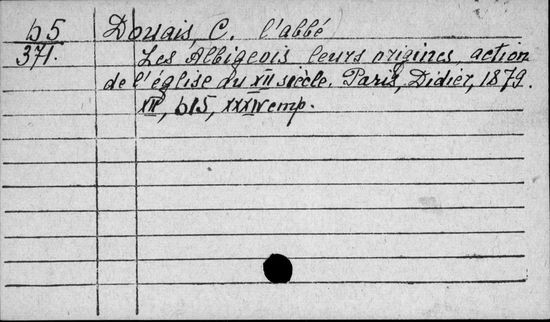 Б5 Douais, C. l'abbé
371. Les Albigeois leurs origines, action
de l'église du XII siècle. Paris, Didier, 1879.
XII, 615, XXXIV стр.